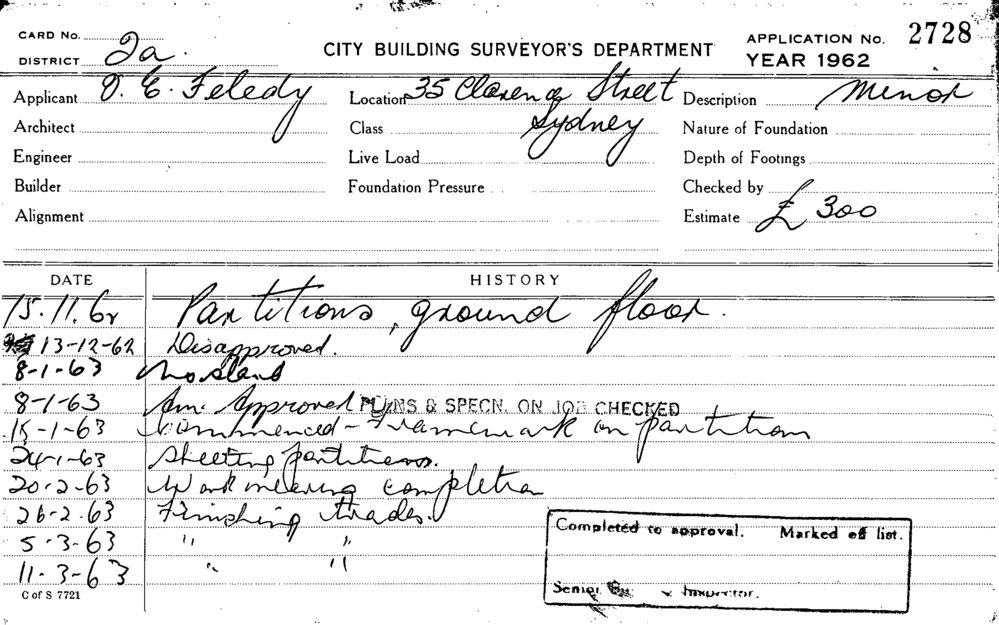 CARD No.
DISTRICT 2a.
CITY BUILDING SURVEYOR'S DEPARTMENT
APPLICATION No. 2728
YEAR 1962
Applicant E. Feledy
Location 35 Clarence Street
Description Minor
Architect
Class Sydney
Nature of Foundation
Engineer
Live Load
Depth of Footings
Builder
Foundation Pressure
Checked by
Alignment
Estimate £ 300
DATE HISTORY
15.11.62 Partitions, ground floor.
13-12-62 Disapproved.
8-1-63 No start
8-1-63 Am. Approved PLANS & SPECN. ON JOB CHECKED
15-1-63 Commenced - Framework on partitions
24-1-63 Sheeting partitions.
20-2-63 Work nearing completion
26-2-63 Finishing trades.
5-3-63 " "
11-3-63 " "
Completed to approval. Marked off list.
Senior Inspector.
C of S 7721